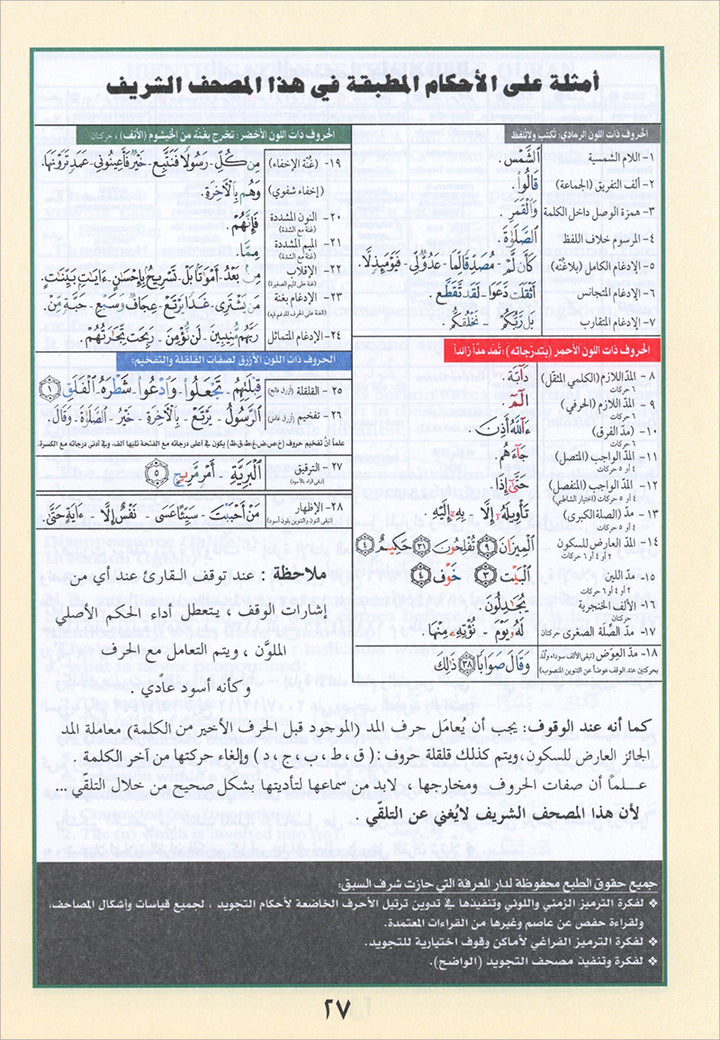 أمثلة على الأحكام المطبقة في هذا المصحف الشريف
الحروف ذات اللون الرمادي: تُكتب ولاتُلفظ
١- اللام الشمسية الشَّمْس.
٢- ألف التفريق (الجماعة) قَالُواْ.
٣- همزة الوصل داخل الكلمة وَالْقَمَر.
٤- المرسوم خلاف اللفظ الصَّلَوٰةَ.
٥- الإدغام الكامل (بلاغُنّه) كَأَن لَّمْ - مُصَدِّقًا لِّمَا - عَدُوٌّ لِّي - فَيَوْمَئِذٍ لَّا.
٦- الإدغام المتجانس أَثْقَلَت دَّعَوَا - لَقَد تَّقَطَّع.
٧- الإدغام المتقارب بَل رَّبُّكُمْ - نَخْلُقكُّم.
الحروف ذات اللون الأحمر (بتدرّجاته): تُمَد مدّاً زائداً
٨- المدّ اللازم (الكلمي المثقّل) دَآبَّة.
٦ حركات
٩- المدّ اللازم (الحرفي) الٓمٓ.
٦ حركات
١٠- مدّ (الفرق) ءَآللَّهُ أَذِنَ.
٦ حركات
١١- المدّ الواجب (المتصل) جَآءَهُم
٤ أو ٥ حركات
١٢- المدّ الواجب (المنفصل) حَتَّىٰٓ إِذَا.
٤ أو ٥ حركات (اختيار الشاطبي)
١٣- مدّ (الصلة الكبرى) تَأْوِيلَهُۥٓ إِلَّا - بِهِۦٓ إِلَيْهِ.
٤ أو ٥ حركات
١٤- المدّ العارض للسكون الْمِيزَانَ ٩ تُفْلِحُونَ ٣١ حَكِيمٌ ٤
٢ أو ٤ أو ٦ حركات
١٥- مدّ اللين الْبَيْتِ ٣ خَوْفٍ ٤
٢ أو ٤ أو ٦ حركات
١٦- الألف الخنجرية يُجَٰدِلُونَ.
حركتان
١٧- مدّ الصِّلة الصغرى حركتان لَهُۥ يَوْمَ - نُؤْتِهِۦ مِنْهَا.
١٨- مدّ العِوَض (تبقى الألف سوداء وتُمَد
بحركتين عند الوقف عوضاً عن التنوين المنصوب) وَقَالَ صَوَابًا ٣٨ ذَٰلِكَ
الحروف ذات اللون الأخضر: تخرج بغُنّة من الخيشوم (الأنف)، حركتان
١٩- (غُنّة الإخفاء) مِن كُلِّ - رَسُولًا فَنَتَّبِعَ - خَيْرٌ فَأَعِينُونِي - عَمَدٍ تَرَوْنَهَا.
(إخفاء شفوي) وَهُم بِالْآخِرَةِ.
٢٠- النون المشددة فَإِنَّهُمْ.
(غنة مع الشدة)
٢١- الميم المشددة مِمَّا.
(غنة مع الشدة)
٢٢- الإقلاب مِنۢ بَعْدُ - أَمْوَٰتًۢا بَل - تَسْرِيحٌۢ بِإِحْسَٰنٍ - ءَايَٰتٍۭ بَيِّنَٰتٍ.
(غنة على الميم الصغيرة)
٢٣- الإدغام بغنة مَن يَشْتَرِي - غَدًا يَرْتَعْ - عِجَافٌ وَسَبْعِ - حَبَّةٍ مِّنْ.
٢٤- الإدغام المتماثل رَبَّهُم مُّنِيبِينَ - لَن نُّؤْمِنَ - رَبِحَت تِّجَارَتُهُمْ
الحروف ذات اللون الأزرق لصفات القلقلة والتفخيم:
٢٥- القلقلة (أزرق فاتح) قِبْلَتِهِمُ - تَجْعَلُواْ - وَادْعُواْ - شَطْرَهُ - الْفَلَقِ ١
٢٦- تفخيم (أزرق غامق) الرَّسُولُ - يَرْتَعْ - بِالْآخِرَةِ - خَيْرٌ - الصَّلَوٰةَ - وَقَالَ.
علماً أنَّ تفخيم حروف (خ،ص،ض،غ،ط،ق،ظ) يكون في أعلى درجاته مع الفتحة تليها ألف، وفي أدنى درجاته مع الكسرة.
٢٧- الترقيق الْبَرِيَّةِ - أَمْرٍ مَّرِيجٍ ٥
٢٨- الإظهار مَنْ أَحْبَبْتَ - سَيِّئًا عَسَى - نَفْسٌ إِلَّا - ءَايَةٍ حَتَّى.
(تبقى النون والتنوين بلون أسود)
ملاحظة : عند توقف القارئ عند أي من
إشارات الوقف ، يتعطل أداء الحكم الأصلي
الملوَّن ، ويتم التعامل مع الحرف
وكأنه أسود عادي .
كما أنه عند الوقوف: يجب أن يُعامَل حرف المد (الموجود قبل الحرف الأخير من الكلمة) معاملة المد
الجائز العارض للسكون،ويتم كذلك قلقلة حروف: ( ق ، ط ، ب ، ج ، د ) وإلغاء حركتها من آخر الكلمة .
علماً أن صفات الحروف ومخارجها ، لابد من سماعها لتأديتها بشكل صحيح من خلال التلقي ...
لأن هذا المصحف الشريف لايُغني عن التلقي .
جميع حقوق الطبع محفوظة لدار المعرفة التي حازت شرف السبق:
❖ لفكرة الترميز الزمني واللوني وتنفيذها في تدوين ترتيل الأحرف الخاضعة لأحكام التجويد ، لجميع قياسات وأشكال المصاحف،
ولقراءة حفص عن عاصم وغيرها من القراءات المعتمدة.
❖ لفكرة الترميز الفراغي لأماكن وقوف اختيارية للتجويد.
❖ لفكرة وتنفيذ مصحف التجويد (الواضح).
٢٧